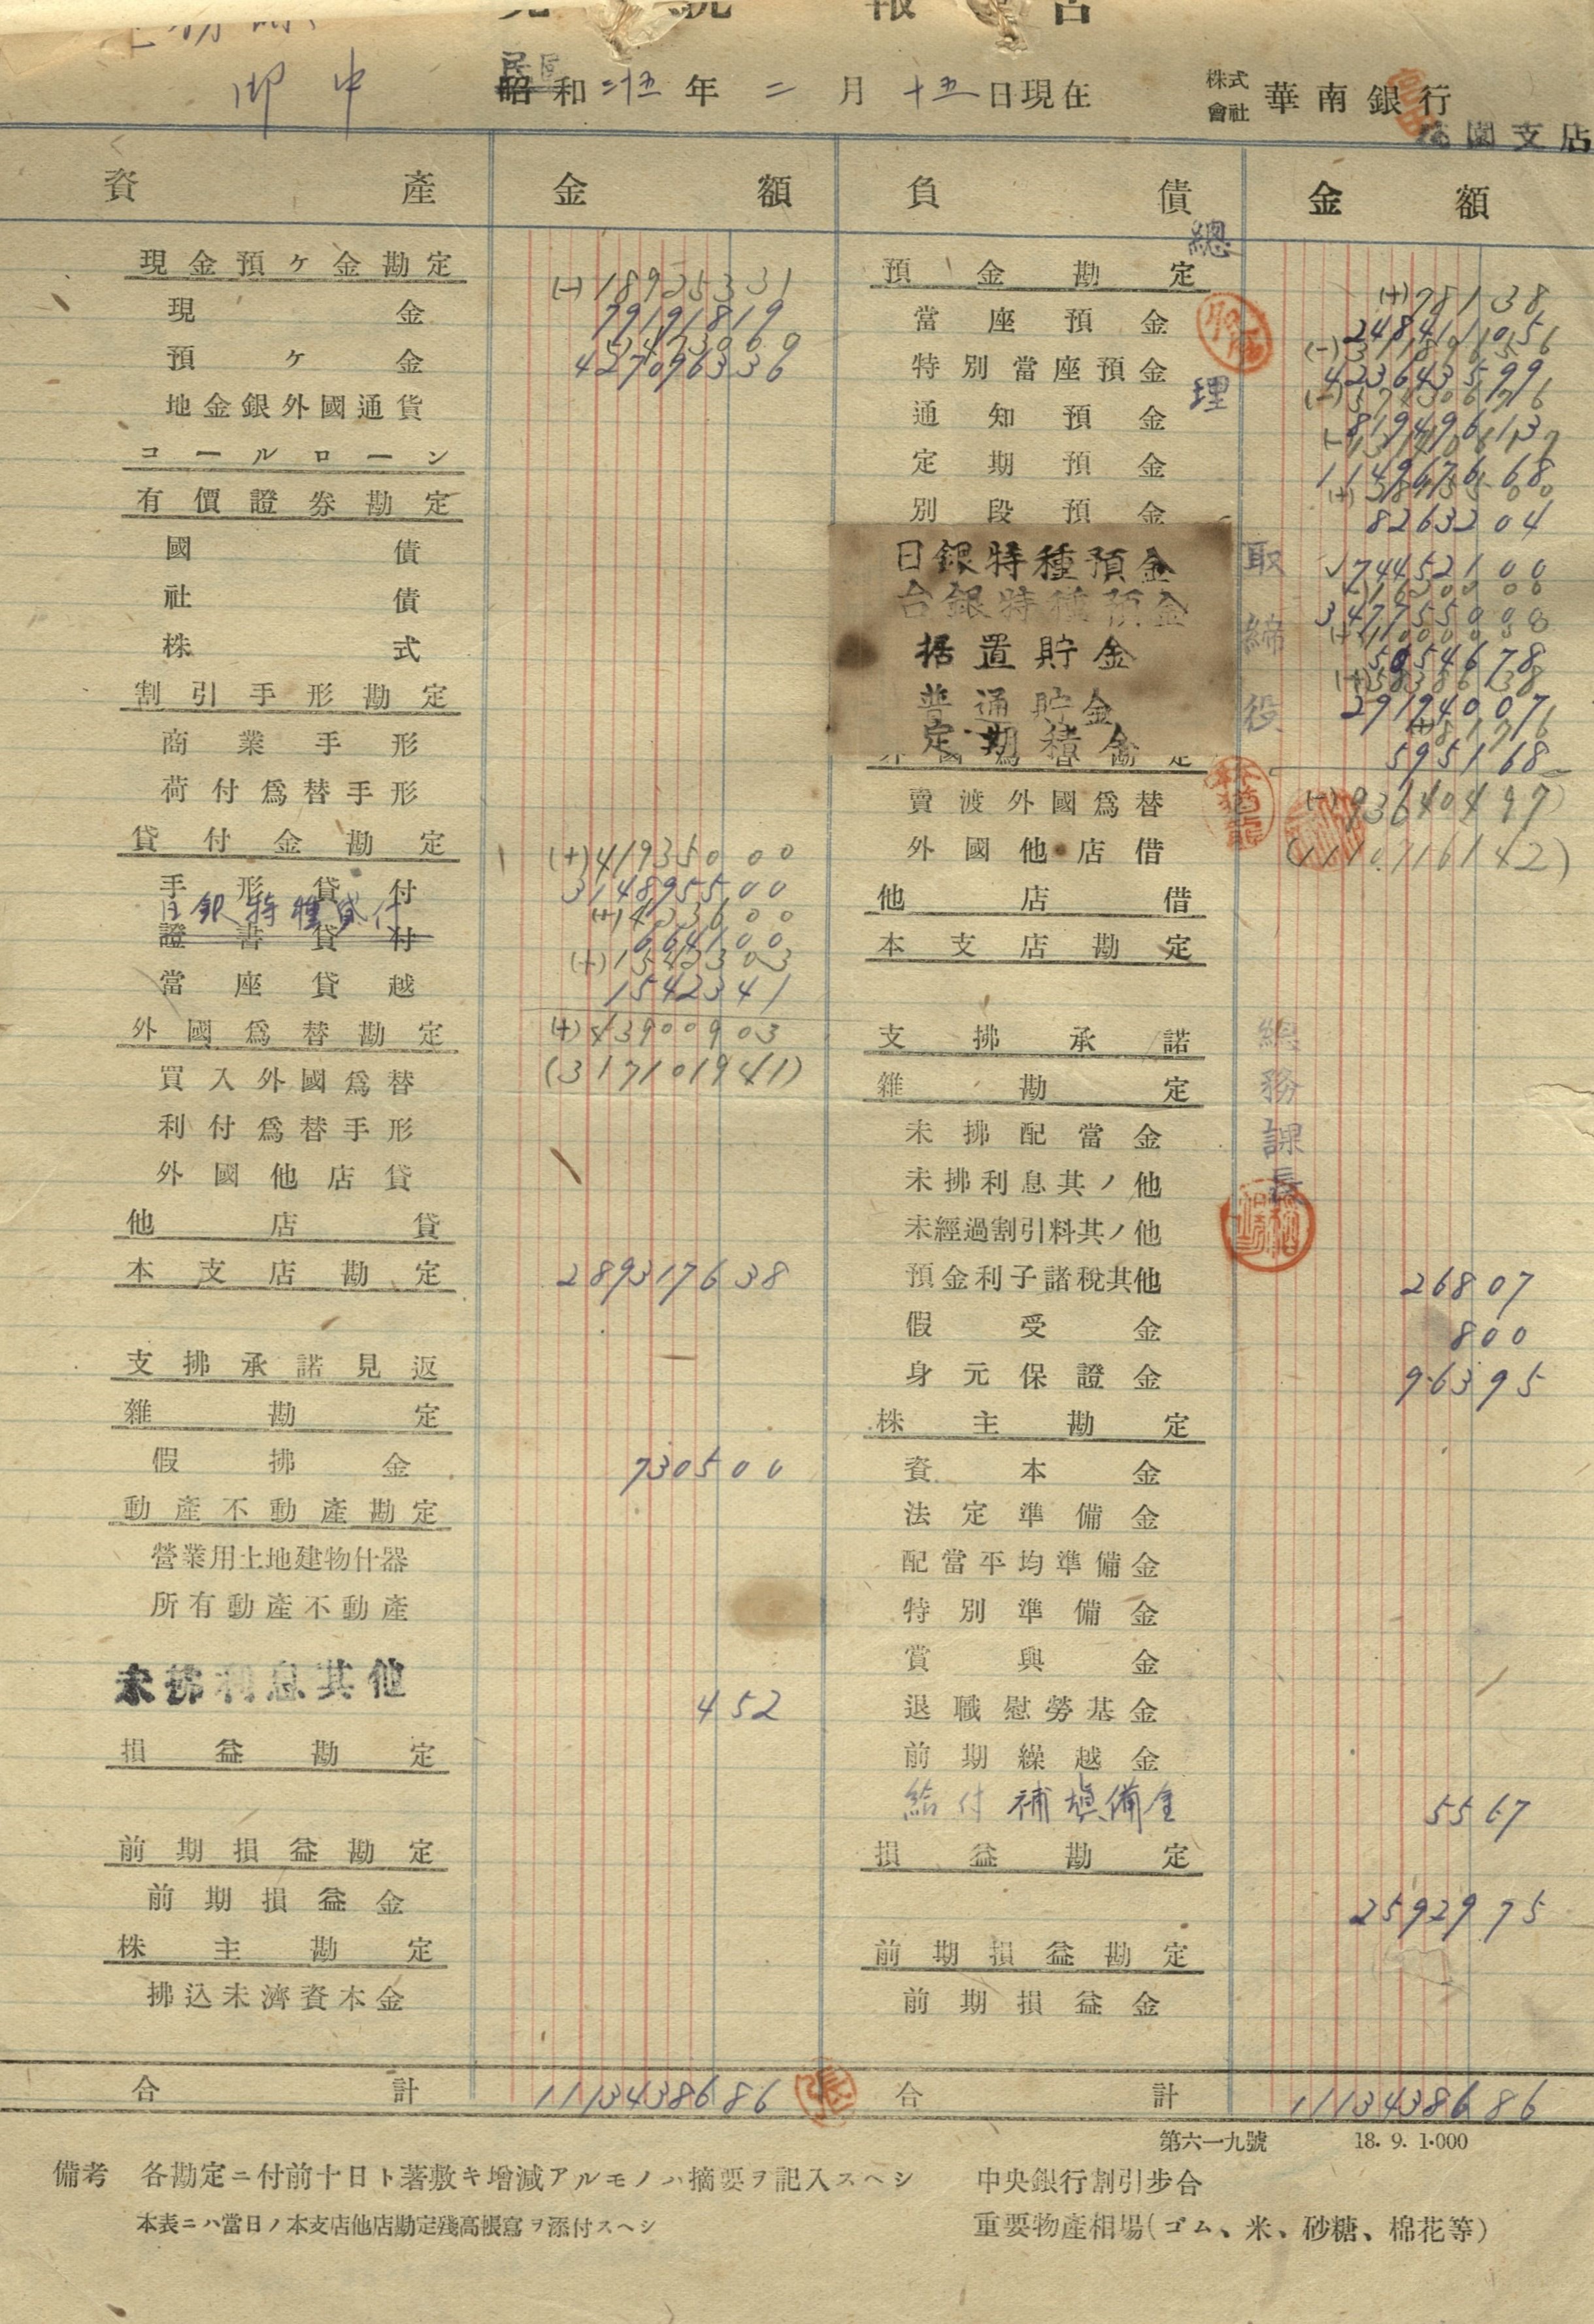 報告
昭和二十五年二月十五日現在
民国
株式會社 華南銀行
園支店
資產 金額 負債 金額
現金預ヶ金勘定 (-)18925331
現金 79191819
預ヶ金 427096336
地金銀外國通貨
コールローン
有價證券勘定
國債
社債
株式
割引手形勘定
商業手形
荷付爲替手形
貸付金勘定 (+)41935000
手形貸付 314895500
日銀特種貸付
證書貸付 664100
當座貸越 1542341
外國爲替勘定 (+)43900903
買入外國爲替 (317101941)
利付爲替手形
外國他店貸
他店貸
本支店勘定 289317638
支拂承諾見返
雜勘定
假拂金 730500
動產不動產勘定
營業用土地建物什器
所有動產不動產
未拂利息其他 452
損益勘定
前期損益勘定
前期損益金
株主勘定
拂込未濟資本金
合計 1113438686
預金勘定 (+)78138
當座預金 248411056
特別當座預金 423643599
通知預金 81949613
定期預金 114967668
別段預金 8263204
日銀特種預金 74452100
台銀特種預金 347755000
据置貯金
普通貯金 29194007
定期積金 595168
賣渡外國爲替 (-)93640497
外國他店借 (1110716142)
他店借
本支店勘定
支拂承諾
雜勘定
未拂配當金
未拂利息其ノ他
未經過割引料其ノ他
預金利子諸稅其他 26807
假受金 800
身元保證金 96395
株主勘定
資本金
法定準備金
配當平均準備金
特別準備金
賞與金
退職慰勞基金
前期繰越金
給付補塡備金 5567
損益勘定
2592975
前期損益勘定
前期損益金
合計 1113438686
總理
取締役
總務課長
張
第六一九號 18.9.1.000
備考 各勘定ニ付前十日ト著敷キ增減アルモノハ摘要ヲ記入スヘシ
本表ニハ當日ノ本支店他店勘定殘高帳寫ヲ添付スヘシ
中央銀行割引步合
重要物產相場(ゴム、米、砂糖、棉花等)